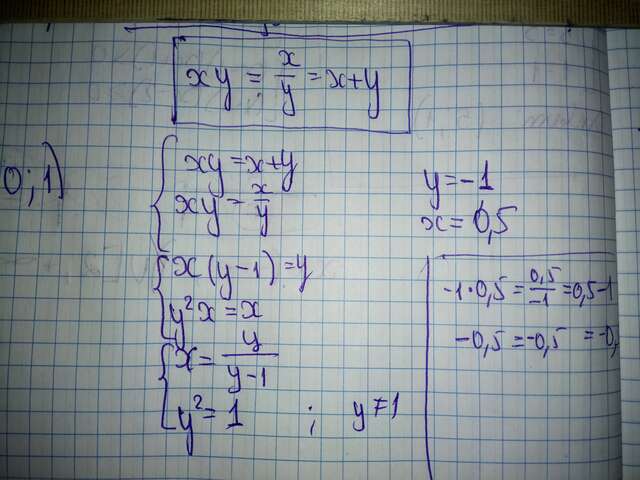 0; 1)
xy = x/y = x+y
xy = x+y
xy = x/y
x(y-1) = y
y²x = x
x = y/(y-1)
y² = 1 ; y ≠ 1
y = -1
x = 0,5
-1·0,5 = 0,5/-1 = 0,5-1
-0,5 = -0,5 = -0,